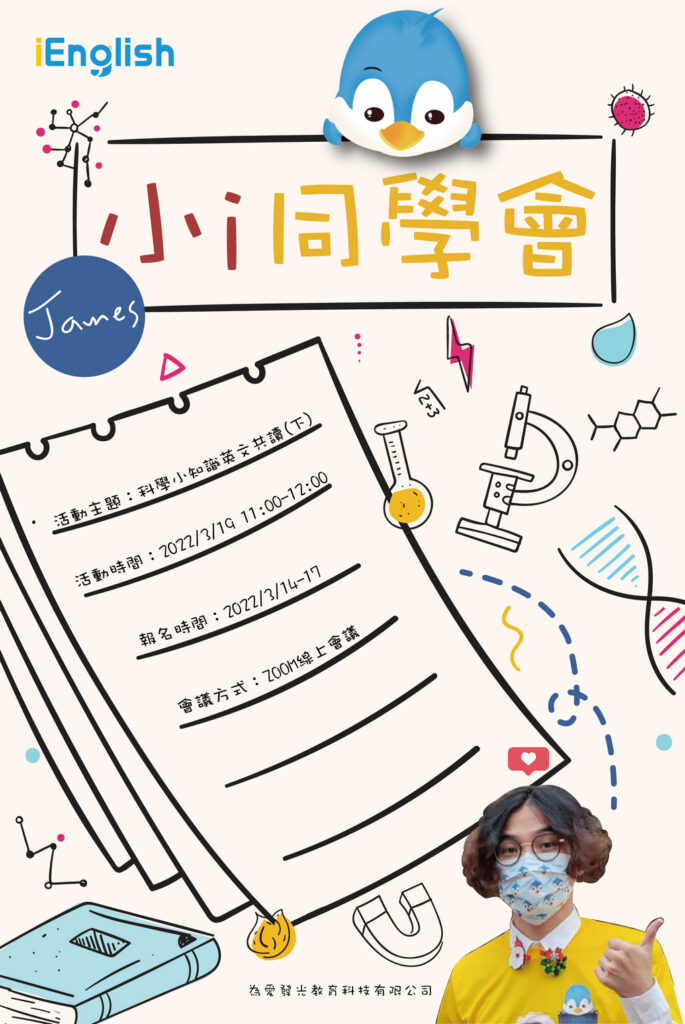 iEnglish
小i同學會
James
活動主題：科學小知識英文共讀(下)
活動時間：2022/3/19 11:00-12:00
報名時間：2022/3/14-17
會議方式：ZOOM線上會議
√2+3
為愛發光教育科技有限公司